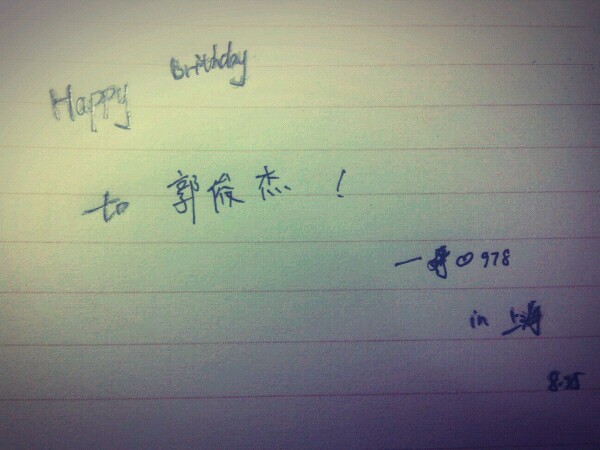 Happy Brithday
to 郭俊杰 !
一 978
in 上海
8.25